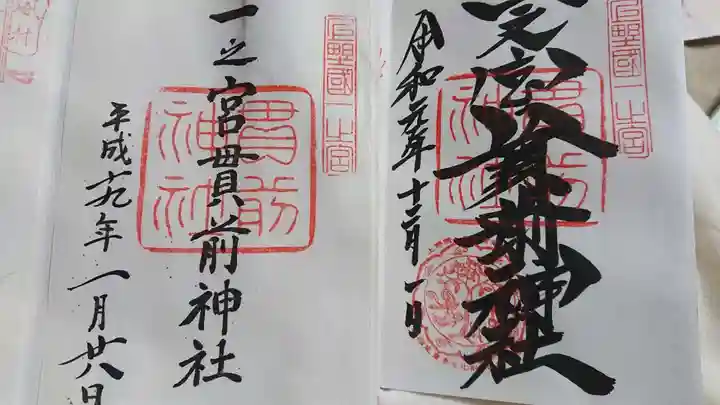 上野國一之宮
之宮貫前神社
貫前神社
令和元年十二月一日
上野國一之宮
一之宮貫前神社
貫前神社
平成十九年一月廿八日